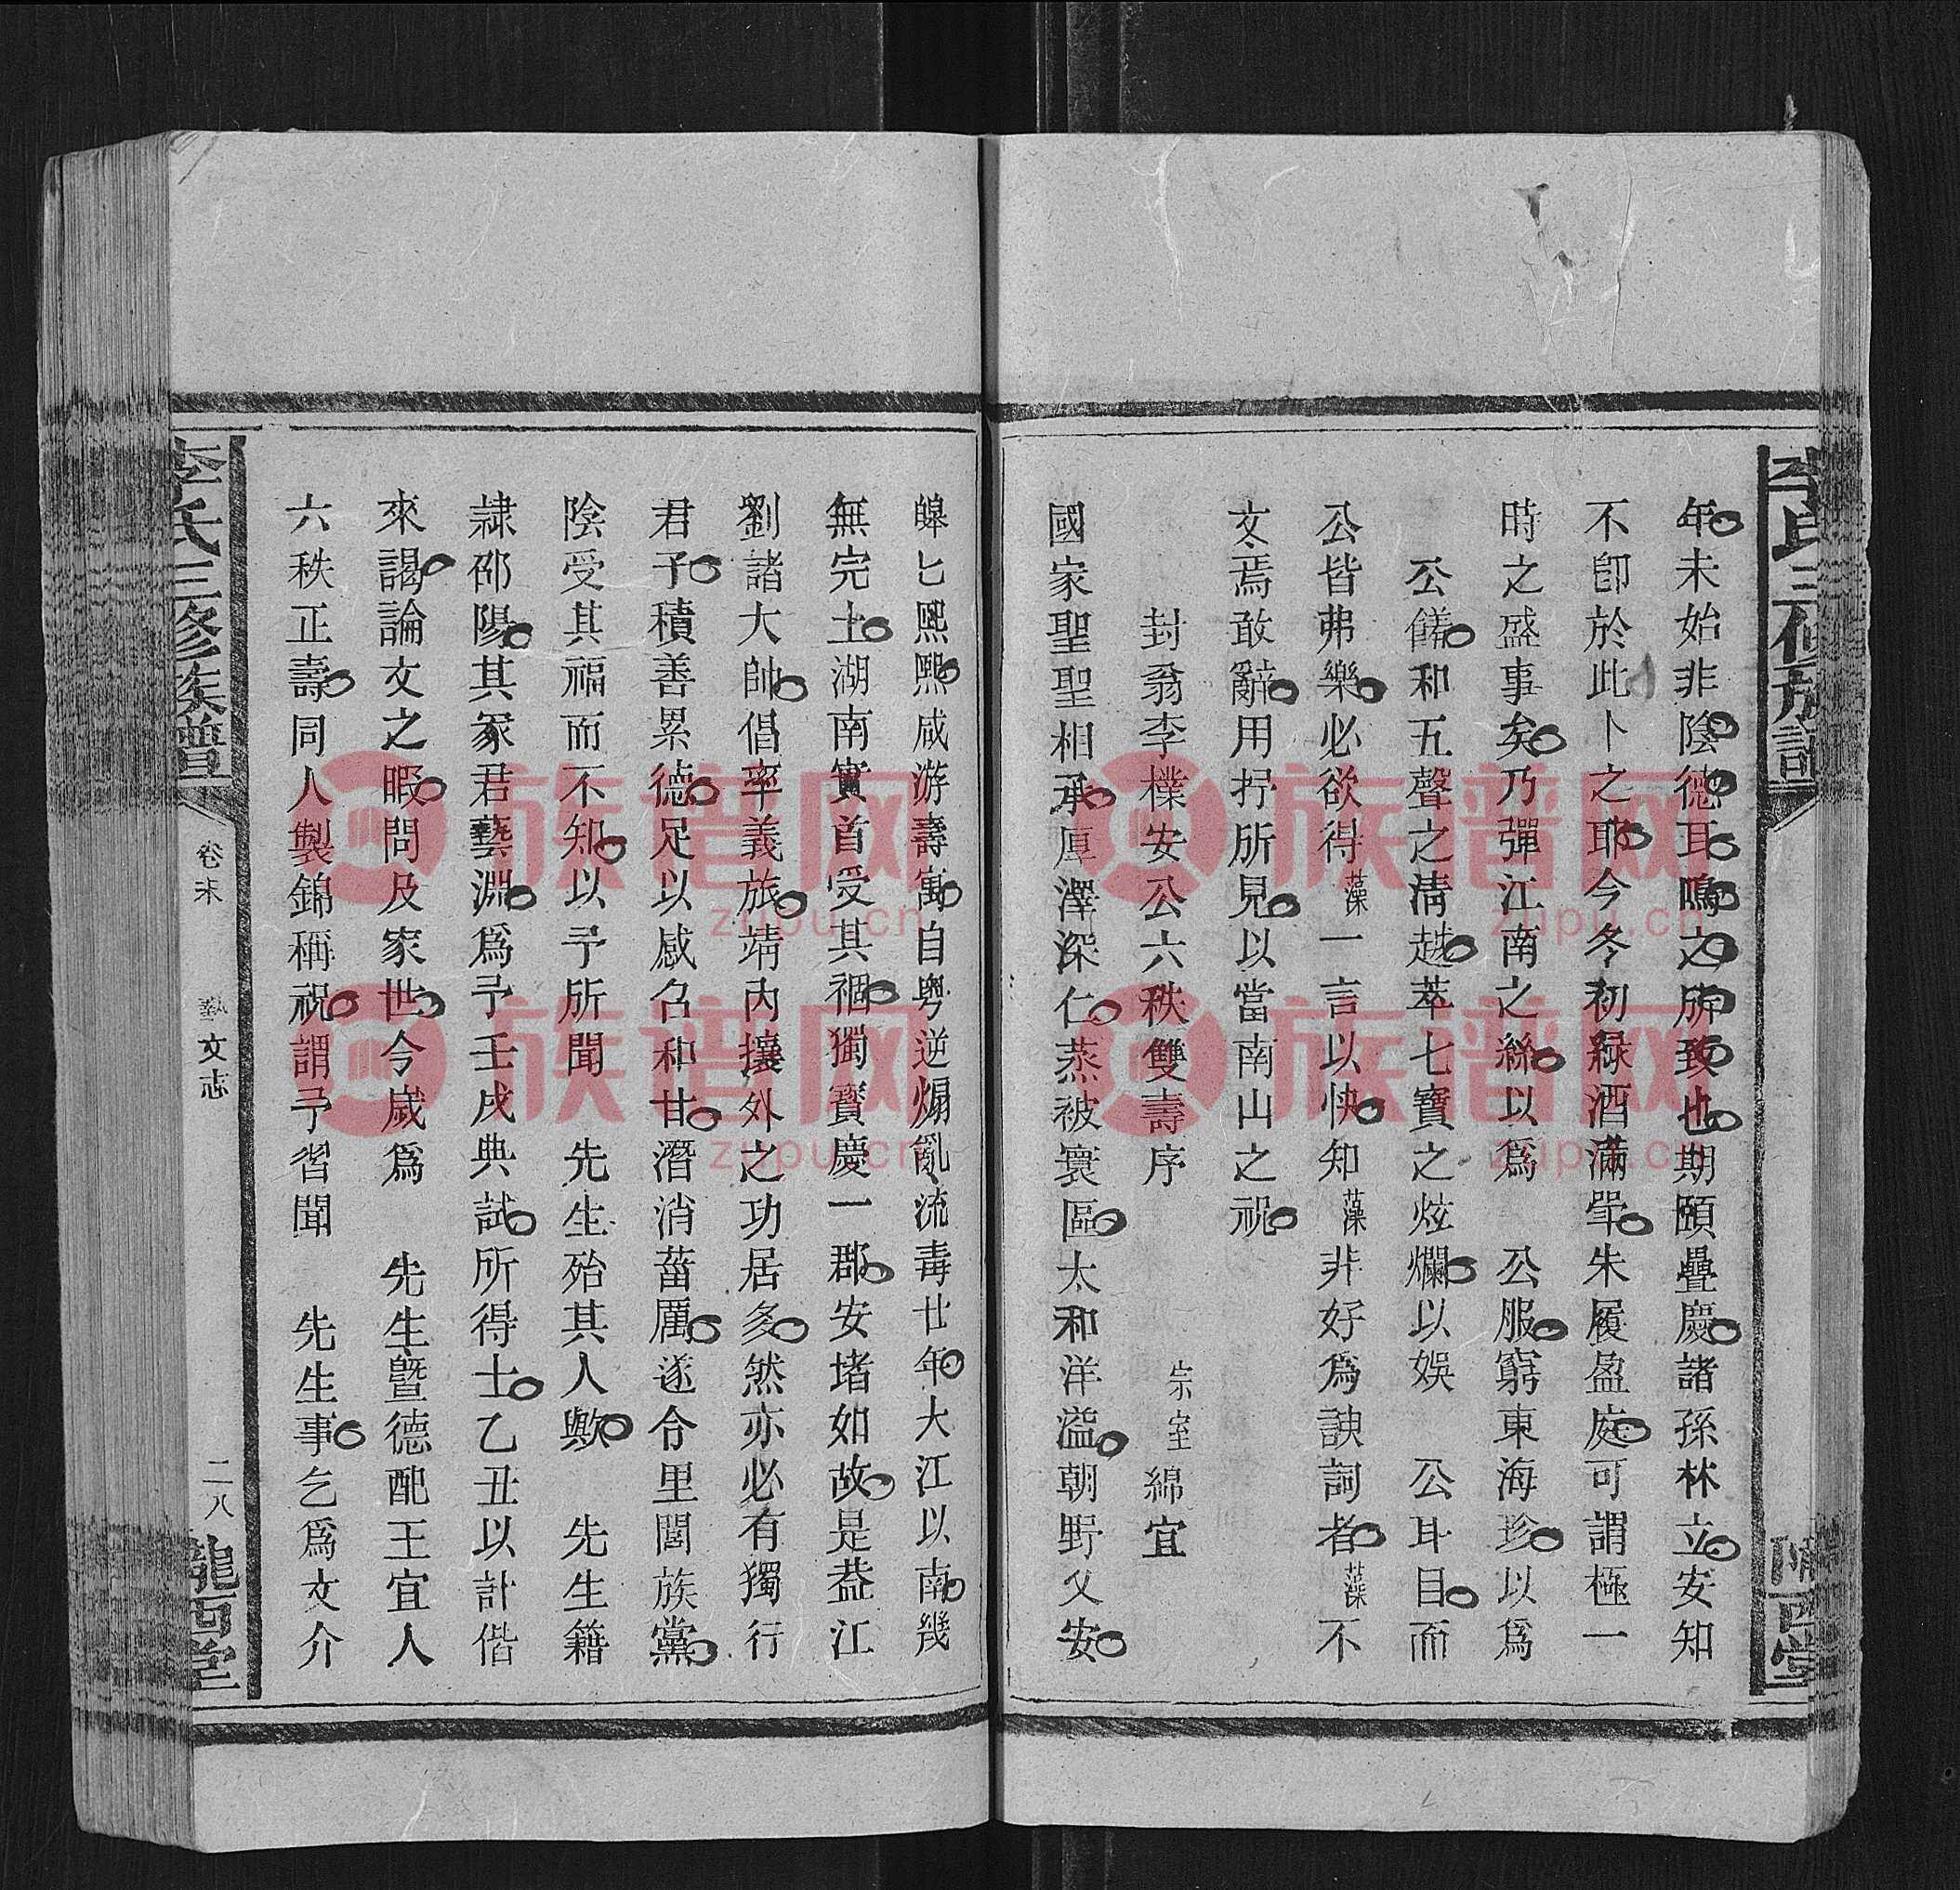 李氏三修族譜
隴西堂
年未始非陰德耳鳴之所致也期頤疊慶諸孫林立安知
不卽於此卜之耶今冬初綠酒滿斝朱履盈庭可謂極一
時之盛事矣乃彈江南之絲以爲 公服窮東海珍以爲
公饈和五聲之淸越萃七寶之炫爛以娛 公耳目而
公皆弗樂必欲得藻一言以快知藻非好爲諛詞者藻不
文焉敢辭用抒所見以當南山之祝
封翁李樸安公六秩雙壽序
宗室 綿宜
國家聖聖相承厚澤深仁蒸被寰區太和洋溢朝野乂安
皞匕熙熙咸游壽㝢自粤逆煽亂流毒廿年大江以南幾
無完土湖南實首受其禍獨寳慶一郡安堵如故是葢江
劉諸大帥倡率義旅靖內攘外之功居多然亦必有獨行
君子積善累德足以感召和甘潛消菑厲遂令里閭族黨
陰受其福而不知以予所聞 先生殆其人歟 先生籍
隷邵陽其冢君藝淵爲予壬戌典試所得士乙丑以計偕
來謁論文之暇問及家世今歲爲 先生曁德配王宜人
六秩正壽同人製錦稱祝謂予習聞 先生事乞爲文介
李氏三修族譜
卷末
藝文志
二八
隴西堂
族譜网
zupu.cn
族譜网
zupu.cn
族譜网
zupu.cn
族譜网
zupu.cn